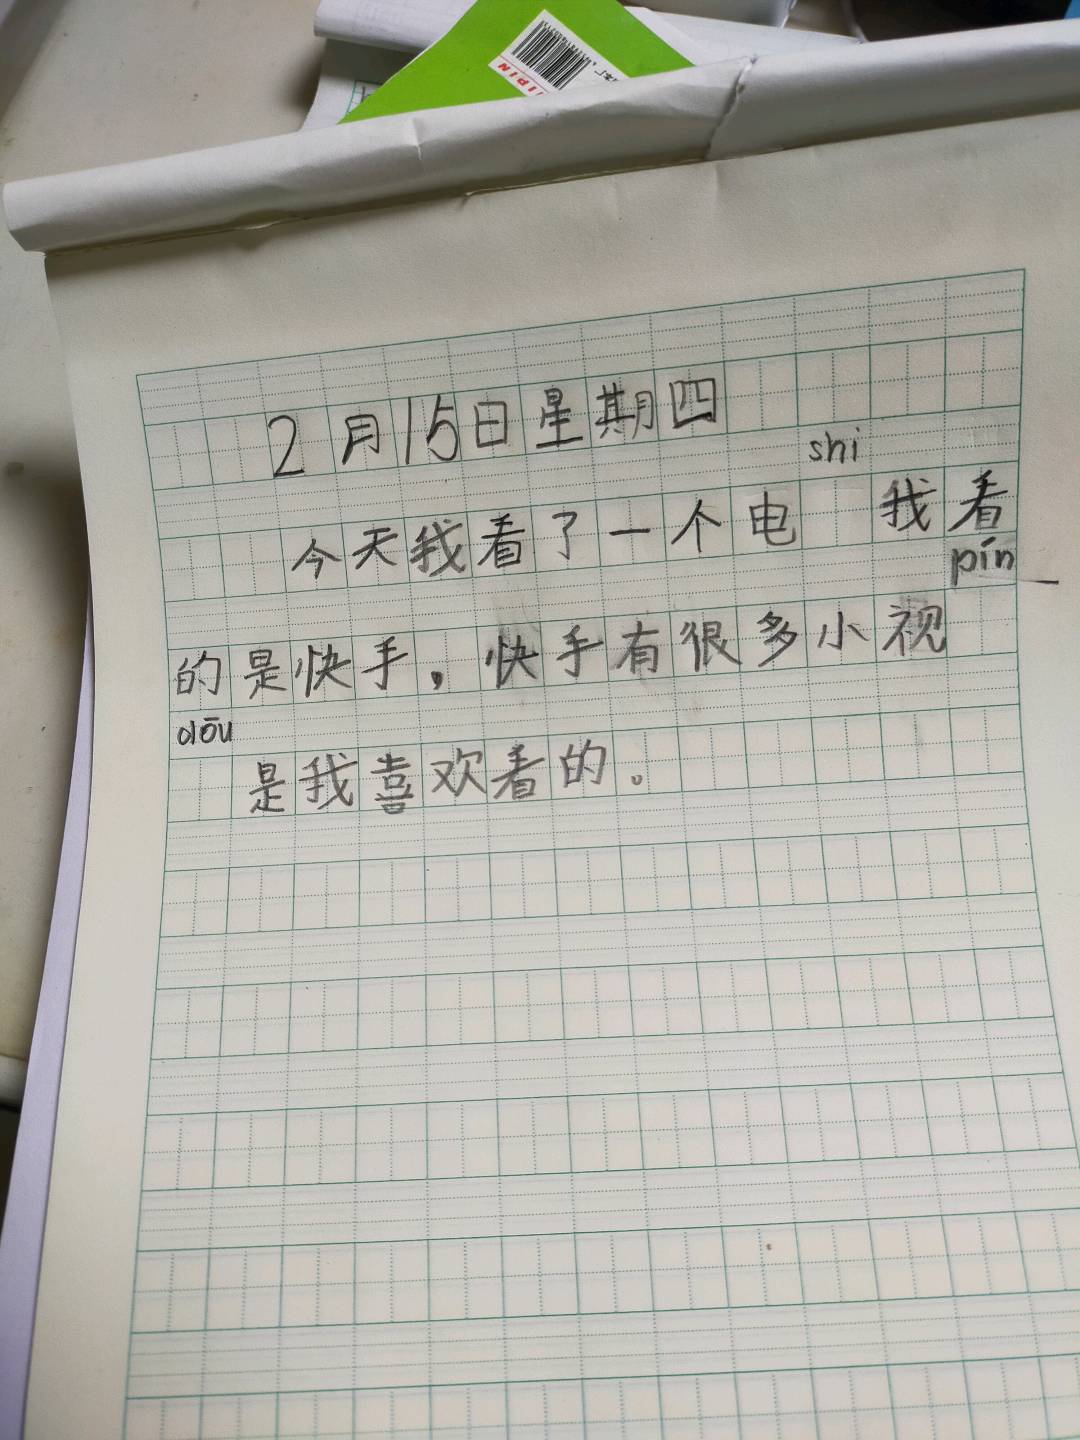 IPIN
2月15日星期四
shi
今天我看了一个电 我看
pín
的是快手，快手有很多小视
dōu
是我喜欢看的。